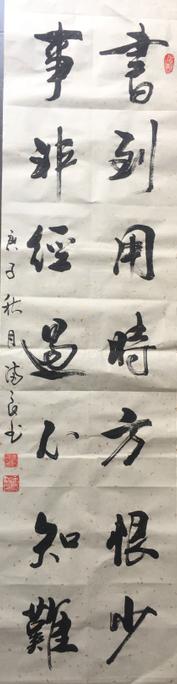 書到用時方恨少
事非經過不知難
庚子秋月